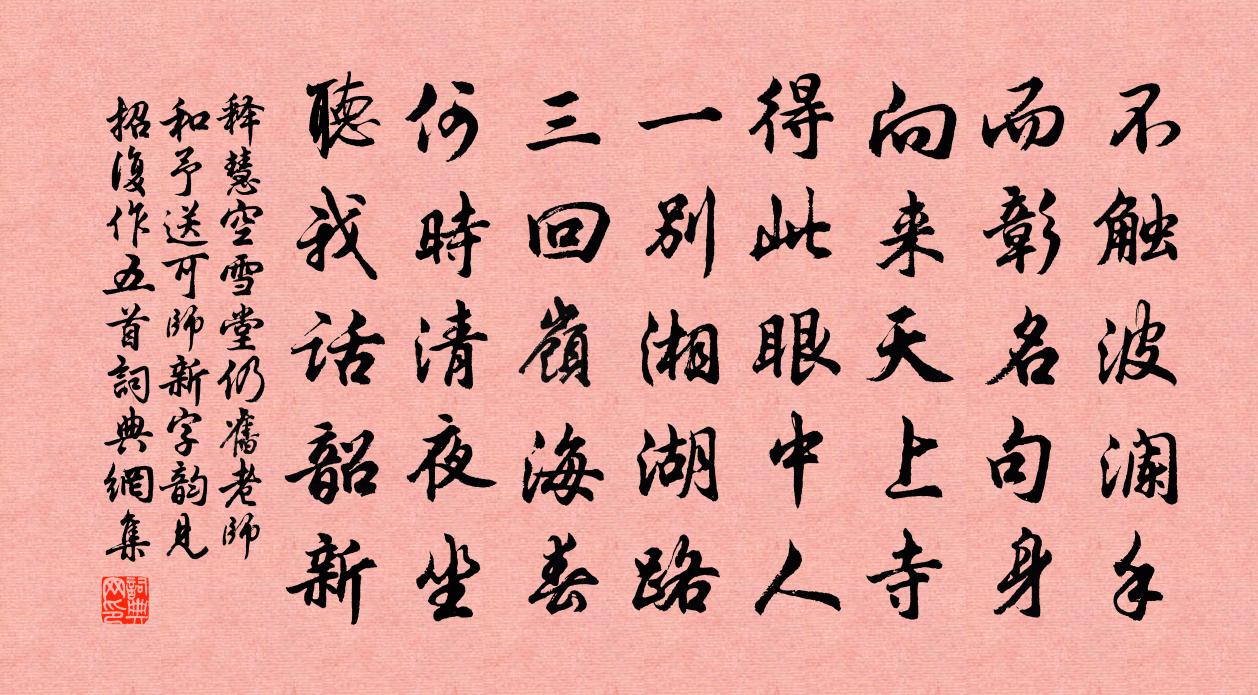 不触波澜手
而彰名句身
向来天上寺
得此眼中人
一别湘湖路
三回嶺海春
何時清夜坐
聽我話韶新
释慧空雪堂仍舊老師
和予送可師新字韵見
招復作五首詞典網集
詞典
网印